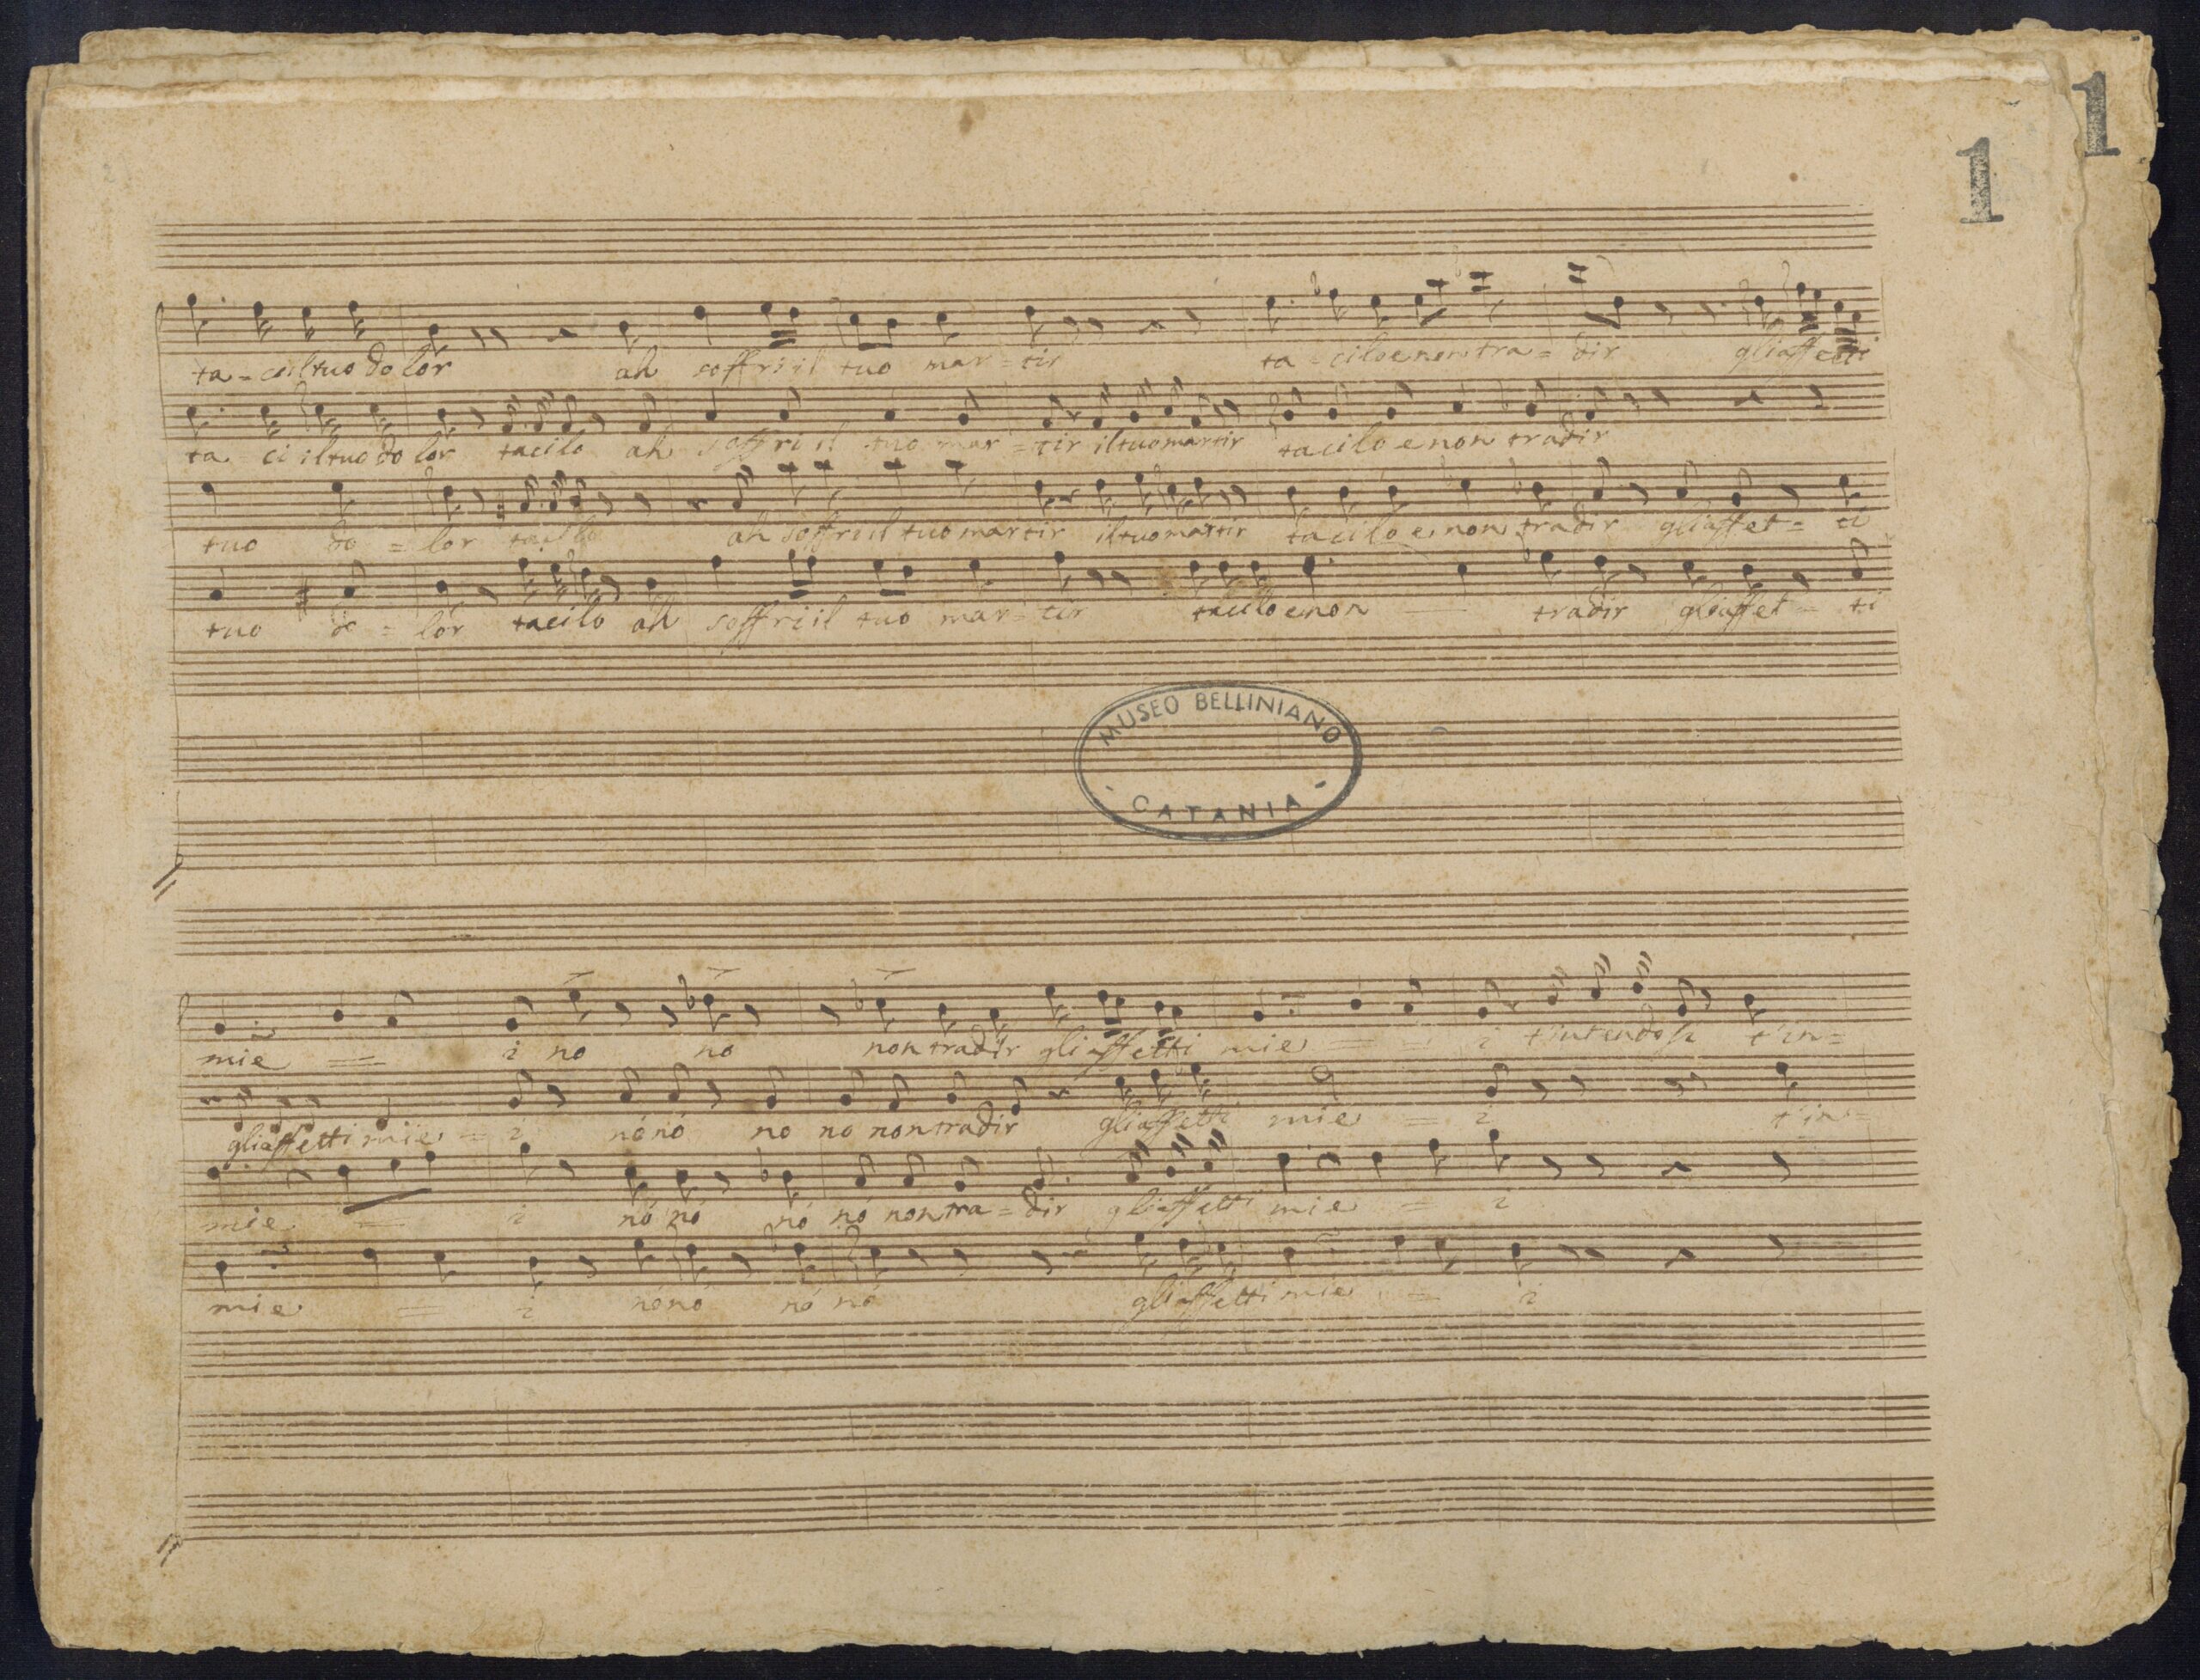 1
1
ta = ci il tuo do lor ah soffri il tuo mar = tir ta = cilo e non tra = dir gli affetti
ta ci il tuo do lor tacilo ah soffri il tuo mar = tir il tuo martir tacilo e non tradir
tuo do = lor tacilo ah soffri il tuo martir il tuo martir tacilo e non tradir gli affet = ti
tuo do = lor tacilo ah soffri il tuo mar = tir tacilo e non tradir gli affet = ti
MUSEO BELLINIANO
- CATANIA -
mie = i no no non tradir gli affetti mie = i t'intendo si t'in =
gli affetti mie = i nó nó no no non tradir gli affetti mie = i t'in =
mie = i nó nó nó nó non tra = dir gli affetti mie = i
mie = i nó nó nó nó gli affetti mie = i